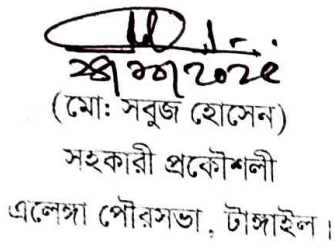 (মো: সবুজ হোসেন)
সহকারী প্রকৌশলী
এলেঙ্গা পৌরসভা, টাঙ্গাইল।